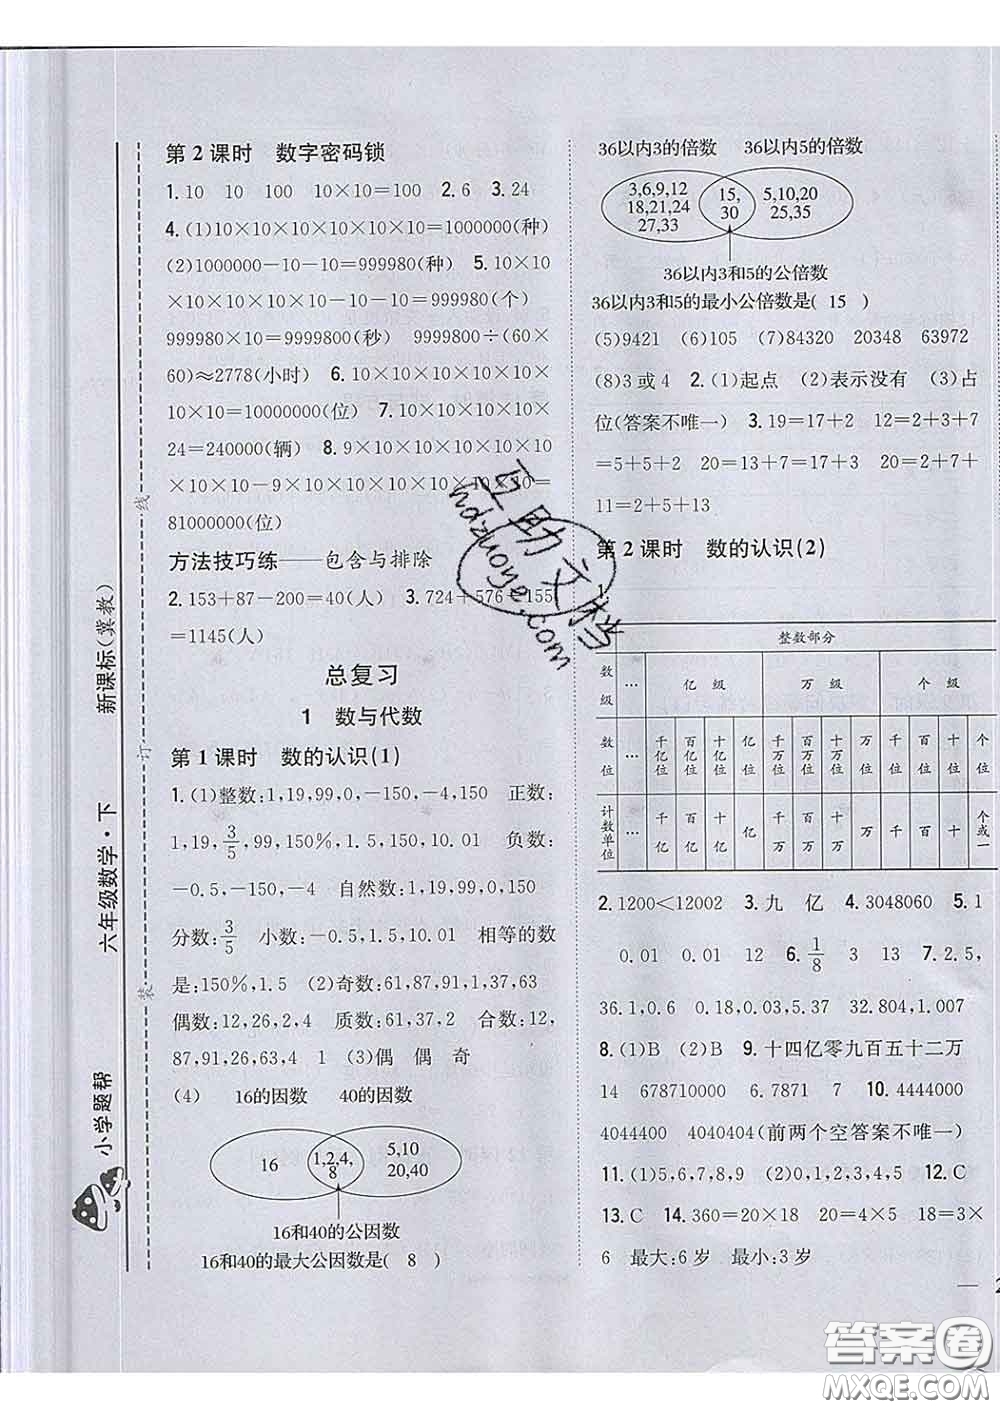 第2课时　数字密码锁
1.10　10　100　10×10=100　2.6　3.24
4.(1)10×10×10×10×10×10=1000000(种)
(2)1000000-10-10=999980(种)　5.10×10
×10×10×10×10-10-10=999980(个)
999980×10=9999800(秒)　9999800÷(60×
60)≈2778(小时)　6.10×10×10×10×10×
10×10=10000000(位)　7.10×10×10×10×
24=240000(辆)　8.9×10×10×10×10×10
×10×10-9×10×10×10×10×10×10=
81000000(位)
方法技巧练——包含与排除
2.153+87-200=40(人)　3.724+576-155
=1145(人)
总复习
1　数与代数
第1课时　数的认识(1)
1.(1)整数:1,19,99,0,-150,-4,150　正数:
1,19,3/5,99,150%,1.5,150,10.01　负数:
-0.5,-150,-4　自然数:1,19,99,0,150
分数:3/5　小数:-0.5,1.5,10.01　相等的数
是:150%,1.5　(2)奇数:61,87,91,1,63,37
偶数:12,26,2,4　质数:61,37,2　合数:12,
87,91,26,63,4　1　(3)偶　偶　奇
(4)　16的因数　40的因数
16　1,2,4,　5,10
8　20,40
16和40的公因数
16和40的最大公因数是(　8　)
36以内3的倍数　36以内5的倍数
3,6,9,12　15,　5,10,20
18,21,24　30　25,35
27,33
36以内3和5的公倍数
36以内3和5的最小公倍数是(　15　)
(5)9421　(6)105　(7)84320　20348　63972
(8)3或4　2.(1)起点　(2)表示没有　(3)占
位(答案不唯一)　3.19=17+2　12=2+3+7
=5+5+2　20=13+7=17+3　20=2+7+
11=2+5+13
第2课时　数的认识(2)
1.
整数部分
数级　…　亿级　万级　个级
数位　…　千亿位　百亿位　十亿位　亿位　千万位　百万位　十万位　万位　千位　百位　十位　个位
计数单位　…　千亿　百亿　十亿　亿　千万　百万　十万　万　千　百　十　个或一
2.1200<12002　3.九　亿　4.3048060　5.1
0.01　0.01　12　6.1/8　3　13　7.2.5,
36.1,0.6　0.18,0.03,5.37　32.804,1.007
8.(1)B　(2)B　9.十四亿零九百五十二万
14　678710000　6.7871　7　10.4444000
4044400　4040404(前两个空答案不唯一)
11.(1)5,6,7,8,9　(2)0,1,2,3,4,5　12.C
13.C　14.360=20×18　20=4×5　18=3×
6　最大:6岁　最小:3岁
—　2
小学题帮　六年级数学·下　新课标(冀教)
装　订　线
互助文档
hdzuoye.com
答案圈
MXQE.COM